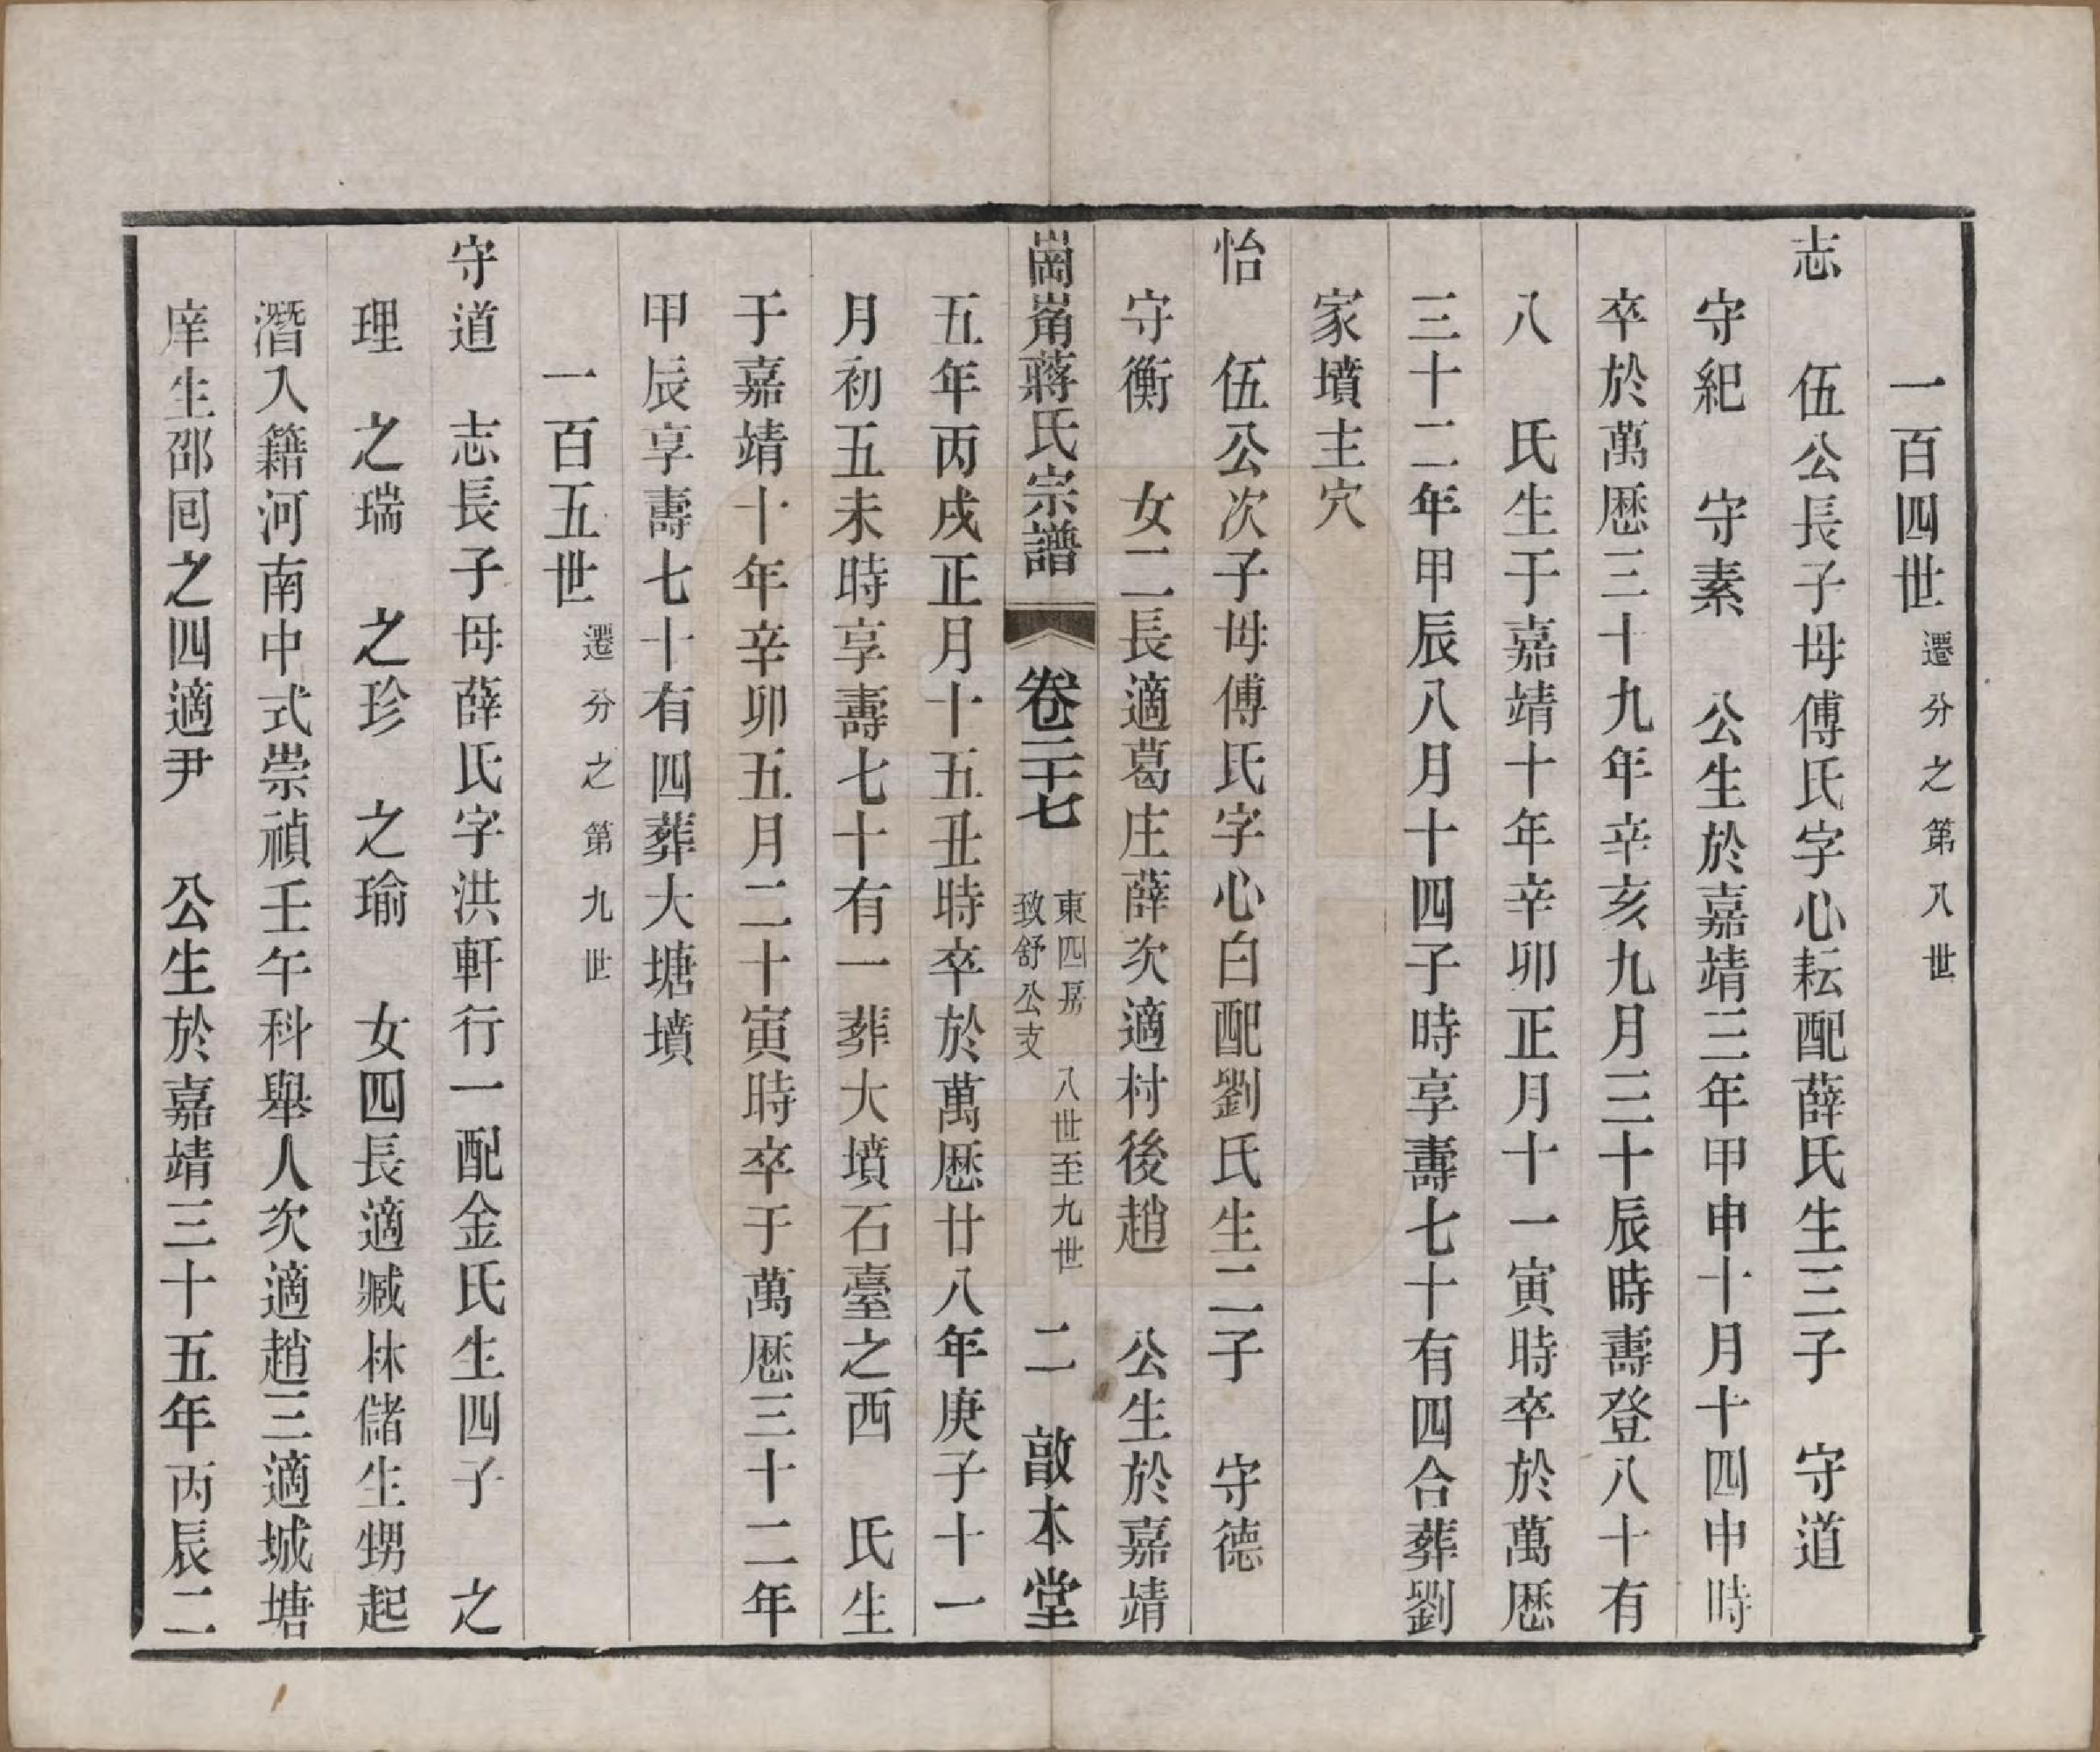 一百四世遷分之第八世
志　伍公長子母傅氏字心耘配薛氏生三子　守道
守紀　守素　公生於嘉靖三年甲申十月十四申時
卒於萬歷三十九年辛亥九月三十辰時壽登八十有
八　氏生于嘉靖十年辛卯正月十一寅時卒於萬歷
三十二年甲辰八月十四子時享壽七十有四合葬劉
家墳主穴
怡　伍公次子母傅氏字心白配劉氏生二子　守德
守衡　女二長適葛庄薛次適村後趙　公生於嘉靖
崗崙蔣氏宗譜　卷二十七　東四房致舒公支　八世至九世　二　敦本堂
五年丙戌正月十五丑時卒於萬歷廿八年庚子十一
月初五未時享壽七十有一葬大墳石臺之西　氏生
于嘉靖十年辛卯五月二十寅時卒于萬歷三十二年
甲辰享壽七十有四葬大塘墳
一百五世遷分之第九世
守道　志長子母薛氏字洪軒行一配金氏生四子　之
理　之瑞　之珍　之瑜　女四長適臧林儲生甥起
潛入籍河南中式崇禎壬午科舉人次適趙三適城塘
庠生邵囘之四適尹　公生於嘉靖三十五年丙辰二